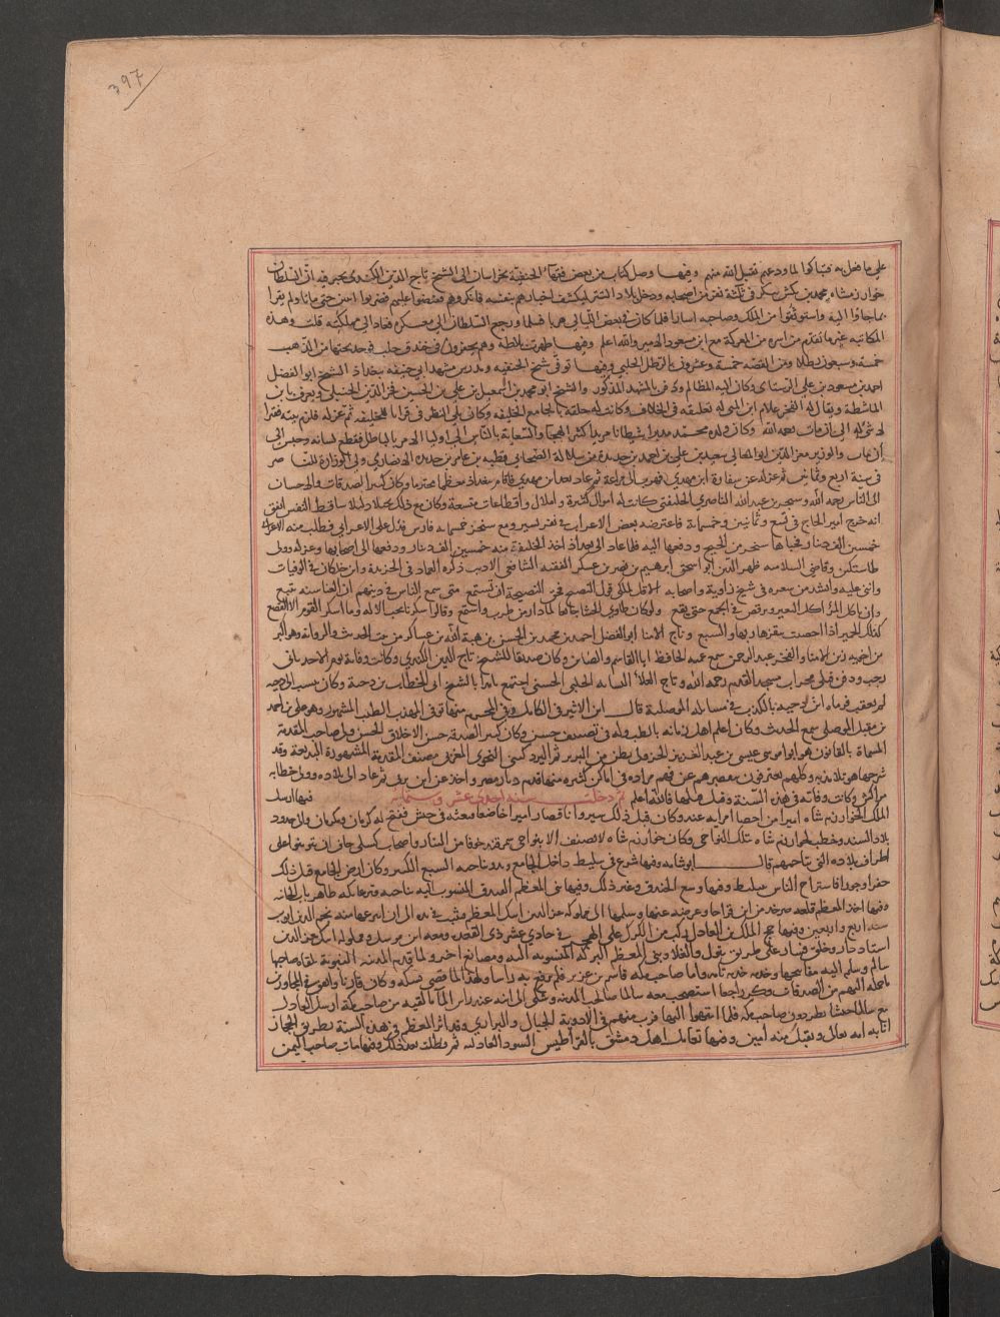 397
على ما فعل به فتباكوا لما ودعهم تقبل الله منهم وفيها وصل كتاب من بعض فقهاء الحنفية بخراسان الى الشيخ تاج الدين الكندى يخبر فيه ان السلطان
خوارزمشاه محمد بن تكش تنكر فى ثلاثة نفر من اصحابه ودخل بلاد التتر ليكشف اخبارهم بنفسه فانكروهم فقبضوا عليهم فضربوا اثنين حتى ماتا ولم يقرا
بما جاؤا اليه واستوثقوا من الملك وصاحبه اسارا فلما كان فى بعض الليالى هربا فسلما ورجع السلطان الى معسكره فعاد الى مملكته قلت وهذه
المكاتبة غير ما تقدم من اسره من المعركة مع ابن مسعود الامير والله اعلم وفيها ظهرت بلاطة وهم يحفرون فى خندق حلب فوجد تحتها من الذهب
خمسة وسبعون رطلا ومن الفضة خمسة وعشرون بالرطل الحلبى وفيها توفى شيخ الحنفية ومدرس مشهد ابى حنيفة ببغداد الشيخ ابو الفضل
احمد بن مسعود بن على وكان اليه المظالم ودفن بالمشهد المذكور والشيخ ابو محمد بن اسمعيل بن على بن الحسين فخر الدين الحنبلى ويعرف بابن
الماشطة ويقال له الفخر غلام ابن المنى له تعليقة فى الخلاف وكانت له حلقة بالجامع الخليفة وكان يلى النظر فى قرايا الخليفة ثم عزله فلزم بيته فقيرا
لا شئ له الى ان مات رحمه الله وكان ولده محمد مدبرا شيطانا مريدا كثير الهجاء والسعاية بالناس الى اوليا الامر بالباطل فقطع لسانه وحبس الى
ان مات والوزير معز الدين ابو المعالى سعيد بن على بن احمد بن حديدة من سلالة الصحابى قطبة بن عامر بن حديدة الانصارى ولى الوزارة للناصر
فى سنة اربع وثمانين ثم عزله عن سفارة ابن مهدى فهرب الى مراغة ثم عاد بعد ابن مهدى فاقام ببغداد معظما محترما وكان كثير الصدقات والاحسان
الى الناس رحمه الله وسنجر بن عبد الله الناصرى الخليفتى كانت له اموال كثيرة واملاك واقطاعات متسعة وكان مع ذلك بخيلا ذليلا ساقط النفس اتفق
انه خرج امير الحاج فى تسع وثمانين وخمسمائة فاعترضه بعض الاعراب فى نفر يسير ومع سنجر خمسمائة فارس فذل على الاعرابى فطلب منه الاعراب
خمسين الف دينار فجباها سنجر من الحجيج ودفعها اليه فلما عاد الى بغداد اخذ الخليفة منه خمسين الف دينار ودفعها الى اصحابها وعزله وولى
طاشتكين وقاضى السلامية ظهير الدين ابو اسحق ابرهيم بن نصر بن عسكر الفقيه الشافعى الاديب ذكره العماد فى الخريدة وابن خلكان فى الوفيات
واثنى عليه وانشد من شعره فى شيخ زاوية واصحابه الا قل لمكى قول النصوح فحق النصيحة ان تستمع متى سمع الناس فى دينهم ان الغنا سنة تتبع
وان ياكل المرء اكل البعير ويرقص فى الجمع حتى يقع ولو كان طاوى الحشا جائعا لما دار من طرب واستمع وقالوا سكرنا بحب الاله وما اسكر القوم الا القصع
كذلك الحمير اذا اخصبت ينقزها ريها والشبع وتاج الامنا ابو الفضل احمد بن محمد بن الحسن بن هبة الله بن عساكر من بيت الحديث والرواية وهو اكبر
من اخويه زين الامنا والفخر عبد الرحمن سمع عميه الحافظ ابا القاسم والصائن وكان صديقا للشيخ تاج الدين الكندى وكانت وفاته يوم الاحد ثانى
رجب ودفن قبلى محراب مسجد القدم رحمه الله وتاج العلا النسابة الحلبى الحسينى اجتمع بامد بالشيخ ابى الخطاب بن دحية وكان ينسب الى دحية
لم يعقب فرماه ابن دحية بالكذب فى مسائله الموصلية قال ابن الاثير فى الكامل وفى المحرم منها توفى المهذب الطبيب المشهور وهو على بن احمد
بن مقبل الموصلى سمع الحديث وكان اعلم اهل زمانه بالطب وله فيه تصنيف حسن وكان كثير الصدقة حسن الاخلاق الجزولى صاحب المقدمة
المسماة بالقانون هو ابو موسى عيسى بن عبد العزيز الجزولى بطن من البربر ثم اليزدكتنى النحوى المغربى مصنف المقدمة المشهورة البديعة وقد
شرحها هو وتلامذته وكلهم يعترفون بتقصيرهم عن فهم مراده فى اماكن كثيرة منها قدم ديار مصر واخذ عن ابن برى ثم عاد الى بلاده وولى خطابة
مراكش وكانت وفاته فى هذه السنة وقيل قبلها فالله اعلم ثم دخلت سنة احدى عشر وستمائة فيها ارسل
الملك خوارزم شاه اميرا من اخصا امرايه عنده وكان قبل ذلك سيروانا فصار اميرا خاصا فبعثه فى جيش ففتح له كرمان ومكران والى حدود
بلاد السند وخطب لخوارزم شاه بتلك النواحى وكان خوارزم شاه لا يصيف الا بنواحى سمرقند خوفا من التتار واصحاب كشلى خان ان يتوثبوا على
اطراف بلاده التى تتاخمهم قال ابو شامة وفيها شرع فى تبليط داخل الجامع وبدوا من ناحية السبع الكبير وكان ارض الجامع قبل ذلك
حفرا وجورا فاستراح الناس بتبليطه وفيها وسع الخندق وغير ذلك وفيها بنى المعظم الفندق المنسوب اليه بناحية قبر عاتكة ظاهر باب الجابية
وفيها اخذ المعظم قلعة صرخد من ابن قراجا وعوضه عنها وسلمها الى مملوكه عز الدين ايبك المعظمى فثبتت فى يده الى ان انتزعها منه نجم الدين ايوب
سنة اربع واربعين وفيها حج الملك بن العادل ركب من الكرك على الهجن فى حادى عشر ذى القعدة ومعه ابن موسك ومملوكه ايبك عز الدين
استاد دار وخلق فسار على طريق تبوك والعلا وبنى المعظم البركة المنسوبة اليه ومصانع اخر ولما قدم المدينة النبوية تلقاه صاحبها
سالم وسلم اليه مفاتيحها وخدمه خدمة تامة واما صاحب مكة قتادة فلم يرفع به راسا ولهذا لما قضى نسكه وكان قارنا وانفق فى المجاورين
ما حمله اليهم من الصدقات وكر راجعا استصحب معه سالما صاحب المدينة وشكى الى ابيه عند راس الما ما لقيه من صاحب مكة ارسل العادل
مع سالم جيشا يطردون صاحب مكة فلما انتهوا اليها هرب منهم فى الاودية والجبال والبرارى وقد اثر المعظم فى هذه السنة بطريق الحجاز
اثابه الله تعالى وتقبل منه امين وفيها تعامل اهل دمشق بالقراطيس السود العادلية ثم بطلت بعد ذلك وفيها مات صاحب اليمن